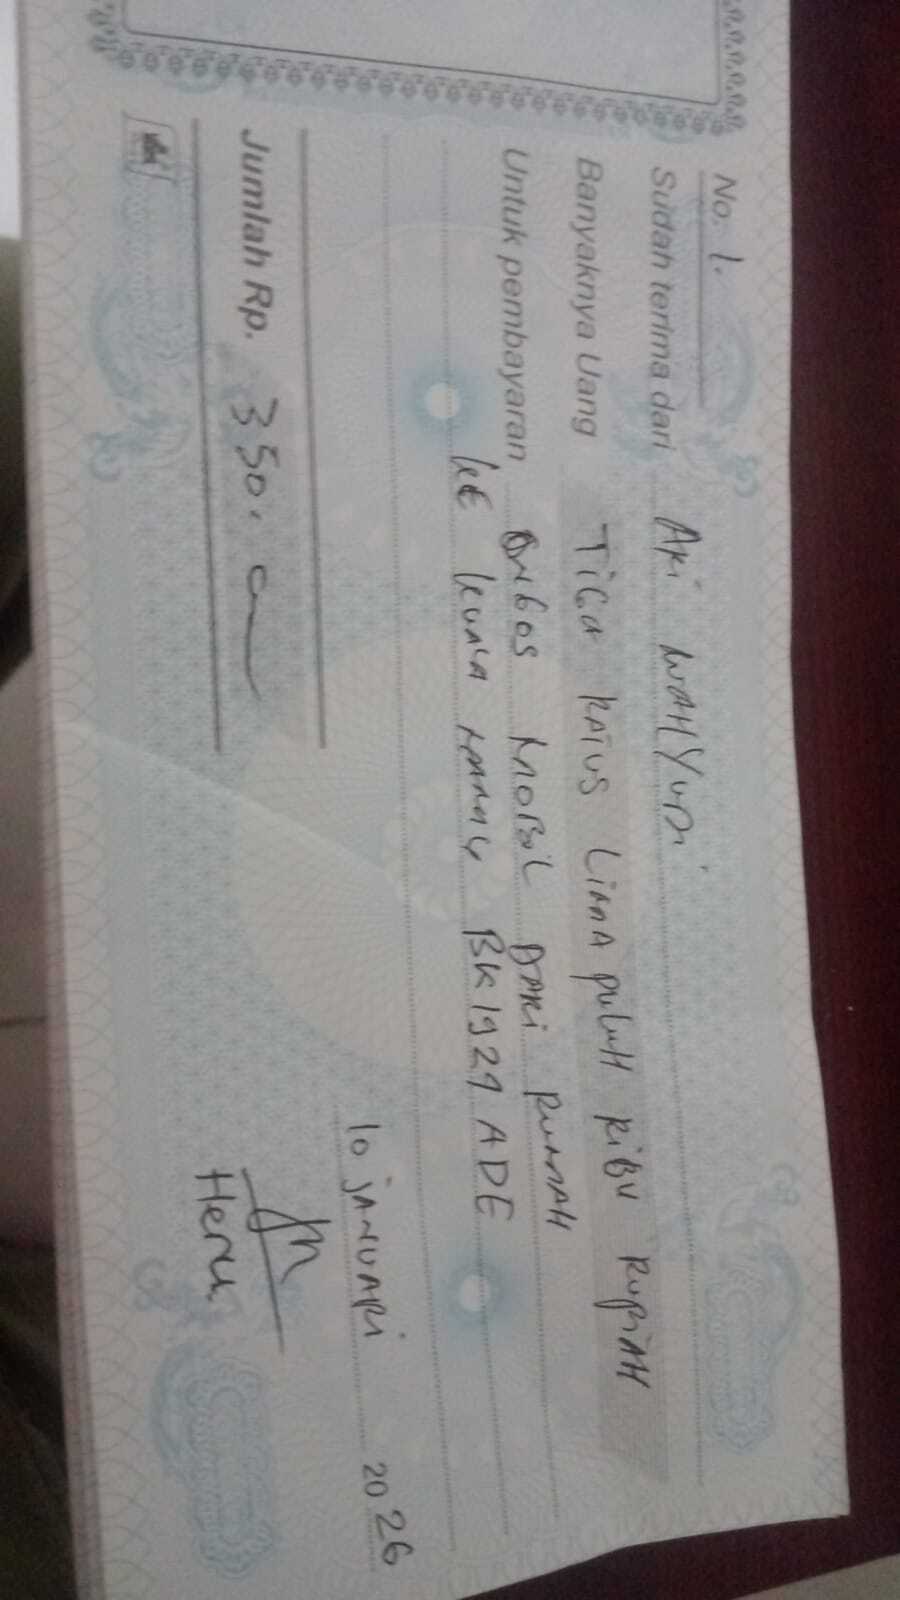 No. 1.
Sudah terima dari ARI WAHYUDI
Banyaknya Uang TIGA RATUS LIMA PULUH RIBU RUPIAH
Untuk pembayaran ONGOS MOBIL DARI RUMAH
KE KUALA NAMU BK 1929 ADE
10 JANUARI 2026
Jumlah Rp. 350.
Heru.